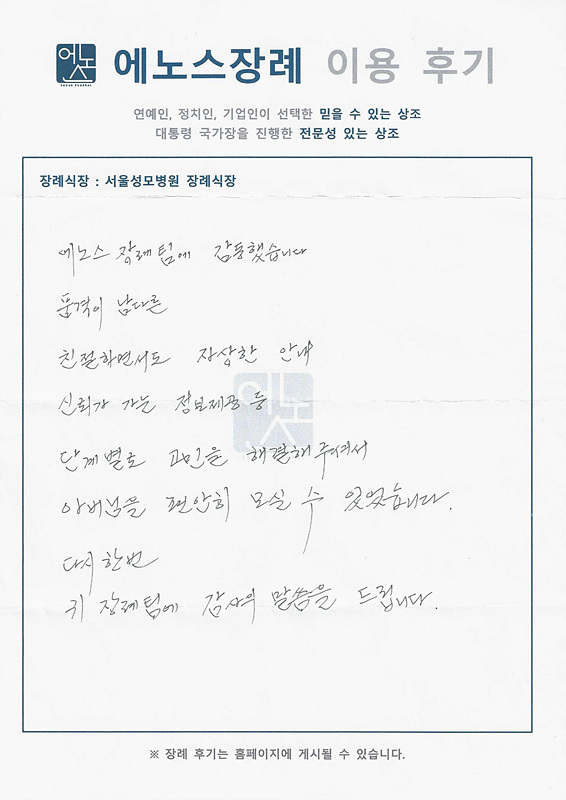 에노스
ENOUS FUNERAL
에노스장례 이용 후기
연예인, 정치인, 기업인이 선택한 믿을 수 있는 상조
대통령 국가장을 진행한 전문성 있는 상조
장례식장 : 서울성모병원 장례식장
에노스 장례팀에 감동했습니다
품격이 남다른
친절하면서도 자상한 안내
신뢰가 가는 정보제공 등
단계별로 고민을 해결해 주셔서
아버님을 편안히 모실 수 있었습니다.
다시 한번
귀 장례팀에 감사의 말씀을 드립니다.
※ 장례 후기는 홈페이지에 게시될 수 있습니다.